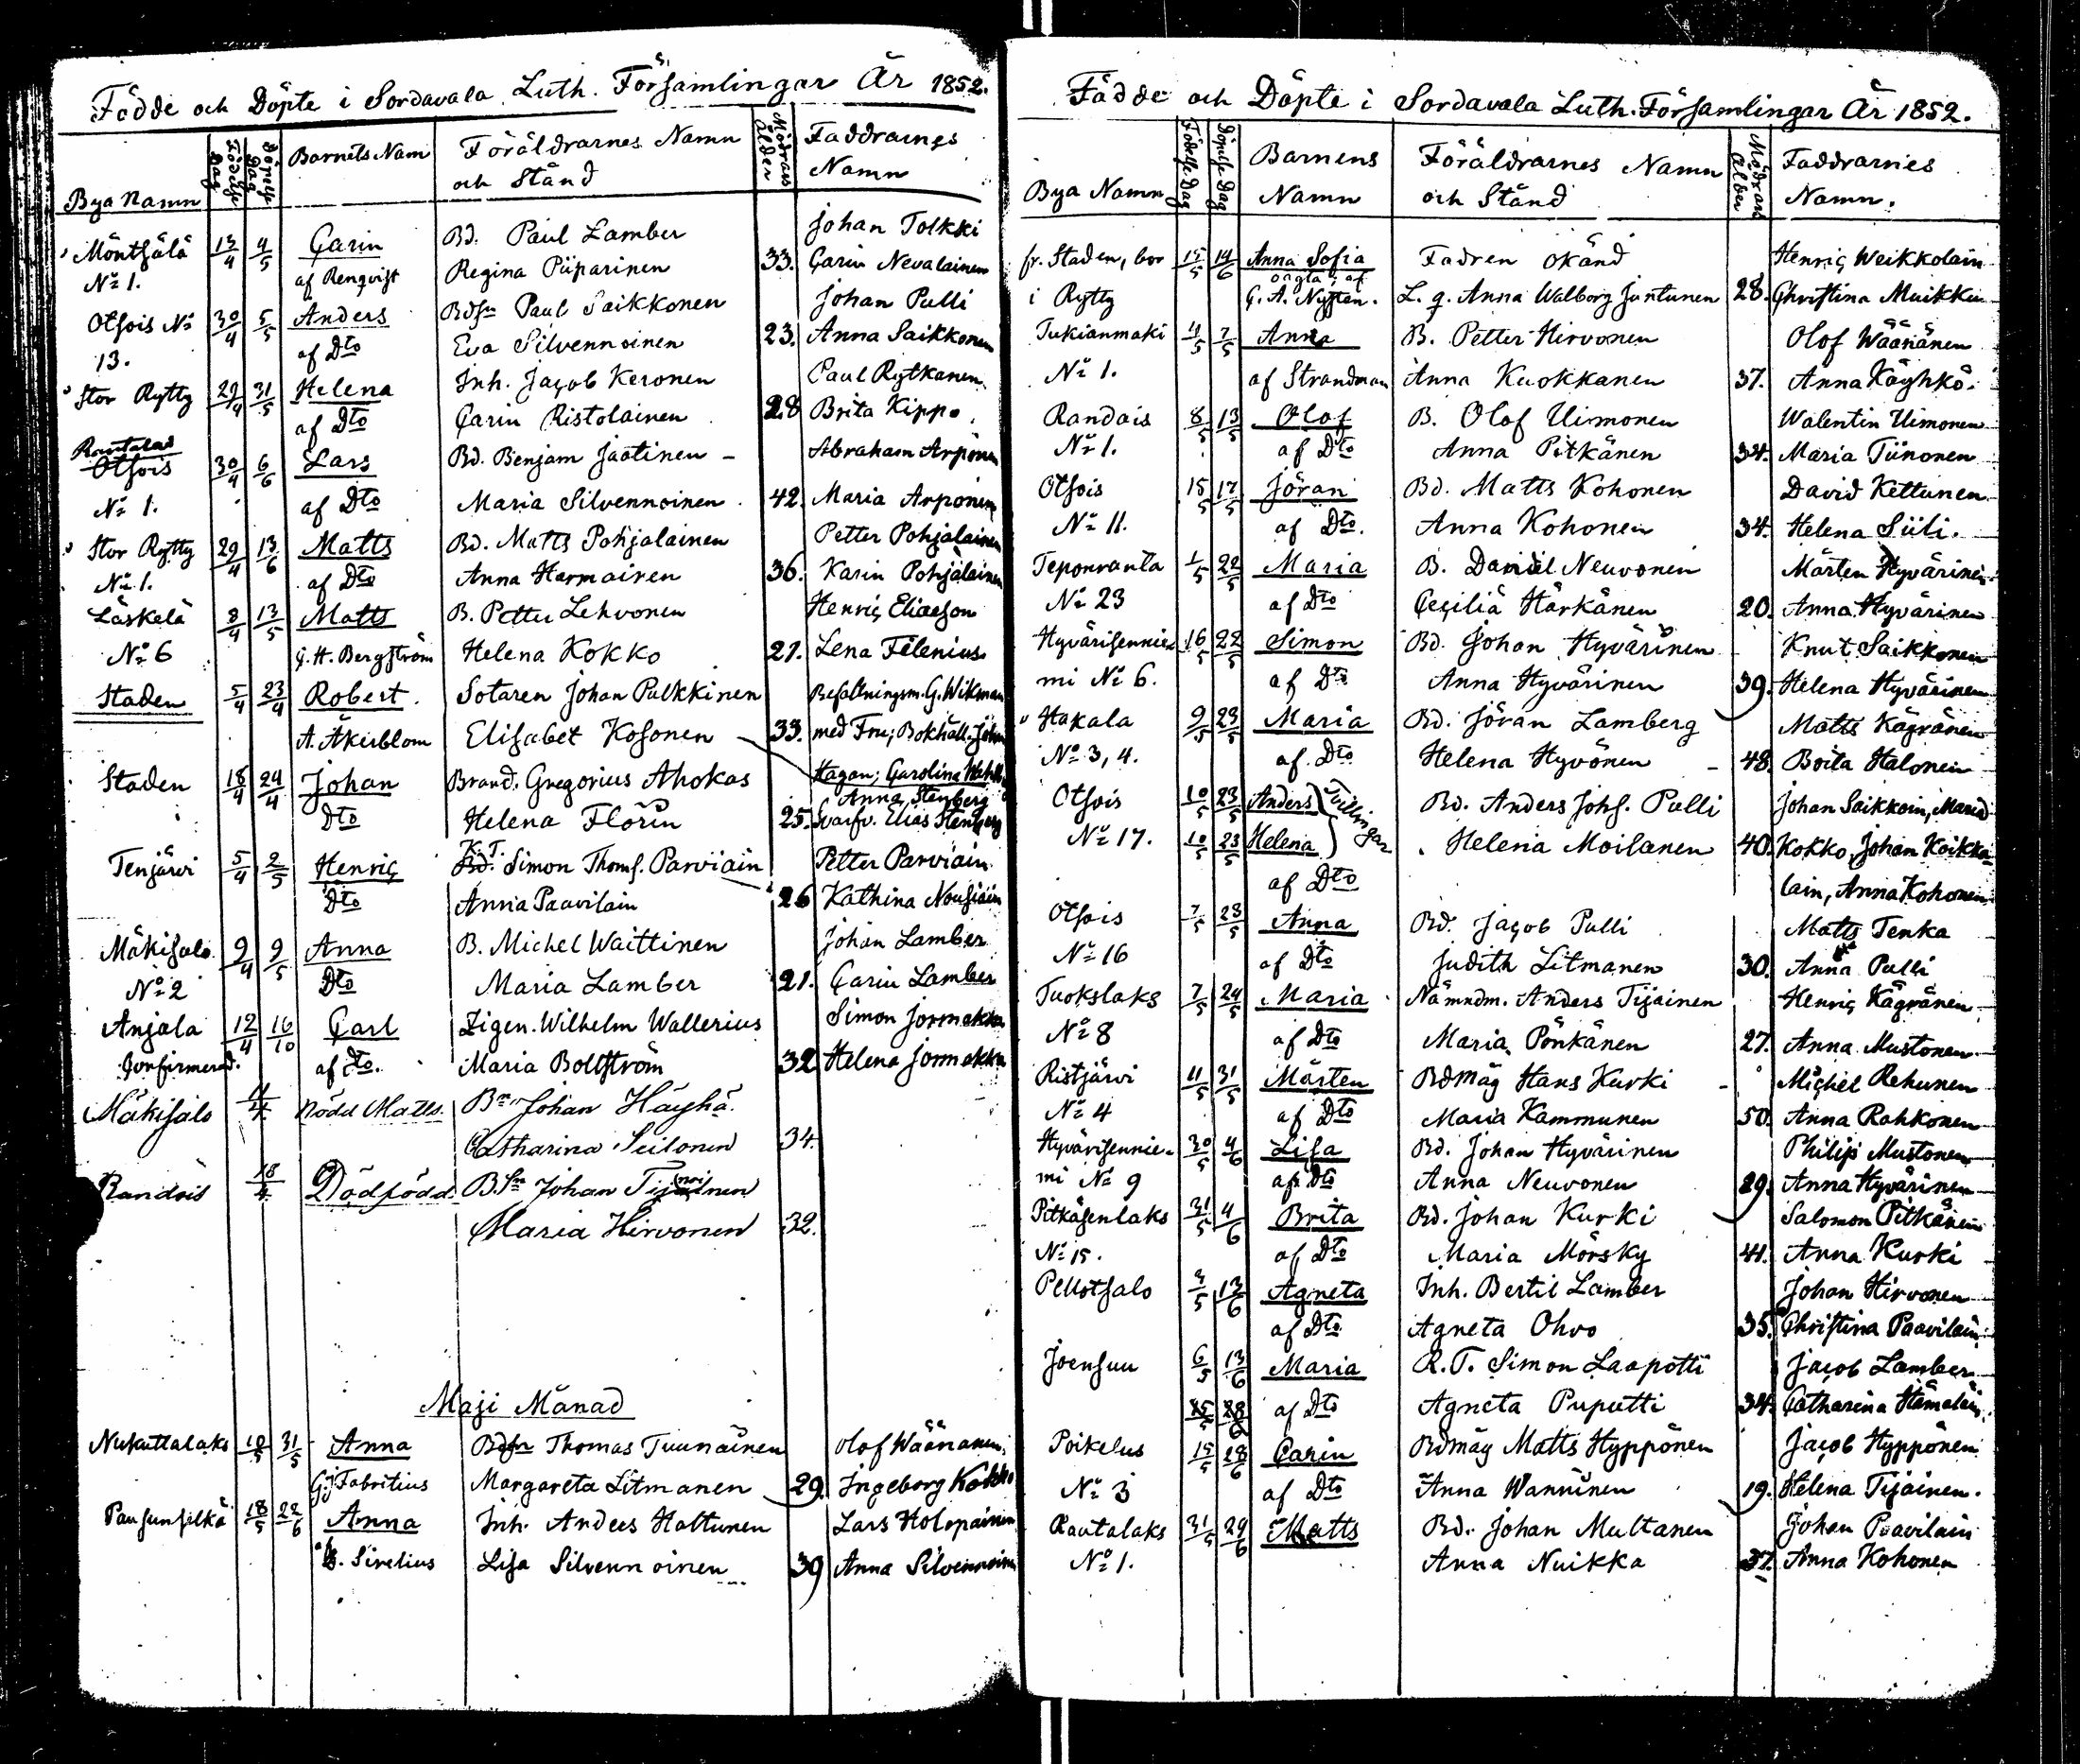 Födde och Döpte i Sordavala Luth. Församlingar År 1852.
Bya Namn Födelse Dag Döpelse Dag Barnets Namn Föräldrarnes Namn och Stånd Modrars Ålder Faddrarnes Namn
Möntsälä 13/4 4/5 Carin Bd. Paul Lamber Johan Tolkki
No 1. af Renqvist Regina Piiparinen 33. Carin Nevalainen
Otsois No 30/4 5/5 Anders Bdsn Paul Saikkonen Johan Pulli
13. af Dto Eva Silvennoinen 23. Anna Saikkonen
Stor Rytty 29/4 31/5 Helena Inh. Jacob Keronen Paul Rytkänen
af Dto Carin Ristolainen 28 Brita Kippo.
Rantalad
Otsois 30/4 6/6 Lars Bd. Benjam Jäätinen - Abraham Arponen
No 1. af Dto Maria Silvennoinen 42. Maria Arponen
Stor Rytty 29/4 13/6 Matts Bd. Matts Pohjalainen Petter Pohjalainen
No 1. af Dto Anna Harmainen 36. Karin Pohjalainen
Läskelä 8/4 13/5 Matts B. Petter Lehvonen Henric Eliaeson
No 6 G. H. Bergström Helena Kokko 21. Lena Filenius
Staden 5/4 23/4 Robert. Sotaren Johan Pulkkinen Befaltningsm. G. Wikman
A. Åkerblom Elisabet Kosonen 33. med Fru; Bokhåll.
Staden 18/4 24/4 Johan Brand. Gregorius Ahokas Hagan; Carolina
Anna Stenberg
Dto Helena Florin 25. Svarfv. Elias Stenberg
K. T.
Tenjärvi 5/4 2/5 Henric Bd. Simon Thoms. Parviain Petter Parviain
Dto Anna Paavilain 26 Kathina Nousiain
Mäkisalo 9/4 9/5 Anna B. Michel Waittinen Johan Lamber
No 2 Dto Maria Lamber 21. Carin Lamber
Anjala 12/4 16/10 Carl Zigen. Wilhelm Wallerius Simon Jormakka
Confirmerad. af Dto. Maria Boltström 32 Helena Jormakka
Mäkisalo 4/4 Nödd Matts. Bn Johan Häyhä.
Catharina Seilonen 34.
Randois 18/4 Dödfödd. B.Sn Johan
Maria Hirvonen 32.
Maji Månad
Nukuttalaks 10/5 31/5 Anna Bdsn Thomas Tuunainen Olof Wäänänen.
G. Fabritius Margareta Litmanen 29. Ingeborg Kokko
Pausunselkä 18/5 22/6 Anna Inh. Anders Hattunen Lars Holopainen
af Sirelius Lisa Silvennoinen 39 Anna Silvennoinen
Födde och Döpte i Sordavala Luth. Församlingar År 1852.
Bya Namn Födelse Dag Döpelse Dag Barnens Namn Föräldrarnes Namn och Stånd Modrars Ålder Faddrarnes Namn.
fr. Staden, bor 15/5 14/6 Anna Sofia Fadren okänd Henric Weikkolain
i Rytty oägta; af G. A. Nysten. L. q. Anna Walborg Juntunen 28. Christina Muikku
Tukianmaki 4/5 7/5 Anna B. Petter Hirvonen Olof Wäänänen
No 1. af Strandman Anna Kuokkanen 37. Anna Käyhkö.
Randois 8/5 13/5 Olof B. Olof Uimonen Walentin Uimonen
No 1. af Dto Anna Pitkänen 34. Maria Tiinonen
Otsois 15/5 17/5 Jöran Bd. Matts Kohonen David Kettunen
No 11. af Dto. Anna Kohonen 34. Helena Siili.
Teponranta 1/5 22/5 Maria B. Daniel Neuvonen Mårten Hyvärinen
No 23 af Dto Cecilia Härkänen 20. Anna Hyvärinen
Hyvärisennie- 16/5 22/5 Simon Bd. Johan Hyvärinen Knut Saikkonen
mi No 6. af Dto Anna Hyvärinen 39. Helena Hyvärinen
Hakala 9/5 23/5 Maria Bd. Jöran Lamberg Matts Kägränen
No 3, 4. af Dto Helena Hyvönen 48. Brita Halonen
Otsois 10/5 23/5 Anders Tvillingar Bd. Anders Johs. Pulli Johan Saikkoin, Maria
No 17. 10/5 23/5 Helena Helena Moilanen 40. Kokko, Johan Koikka
af Dto lain, Anna Kohonen
Otsois 7/5 23/5 Anna Bd. Jacob Pulli Matts Tenka
No 16 af Dto Judith Litmanen 30. Anna Pulli
Tuokslaks 7/5 24/5 Maria Nämndm. Anders Tijäinen Henric Kägränen
No 8 af Dto Maria Pönkänen 27. Anna Mustonen
Ristjärvi 11/5 31/5 Mårten Bdmåg Hans Kurki Michel Rehunen
No 4 af Dto Maria Kammunen 50. Anna Rahkonen
Hyvärisennie- 30/5 4/6 Lisa Bd. Johan Hyvärinen Philip Mustonen
mi No 9 af Dto Anna Neuvonen 29. Anna Hyvärinen
Pitkäsenlaks 31/5 4/6 Brita Bd. Johan Kurki Salomon Pitkänen
No 15. af Dto Maria Mörsky 41. Anna Kurki
Pellotsalo 3/5 13/6 Agneta Inh. Bertil Lamber Johan Hirvonen
af Dto Agneta Ohvo 35. Christina Paavilain
Joensuu 6/5 13/6 Maria R. T. Simon Laapotti Jacob Lamber
af Dto Agneta Puputti 34. Catharina Hämäläin.
Poikelus 15/5 28/6 Carin Bdmåg Matts Hyppönen Jacob Hyppönen
No 3 af Dto Anna Wanninen 19. Helena Tijäinen.
Rautalaks 31/5 29/6 Matts Bd. Johan Multanen Johan Paavilain
No 1. Anna Nuikka 37. Anna Kohonen